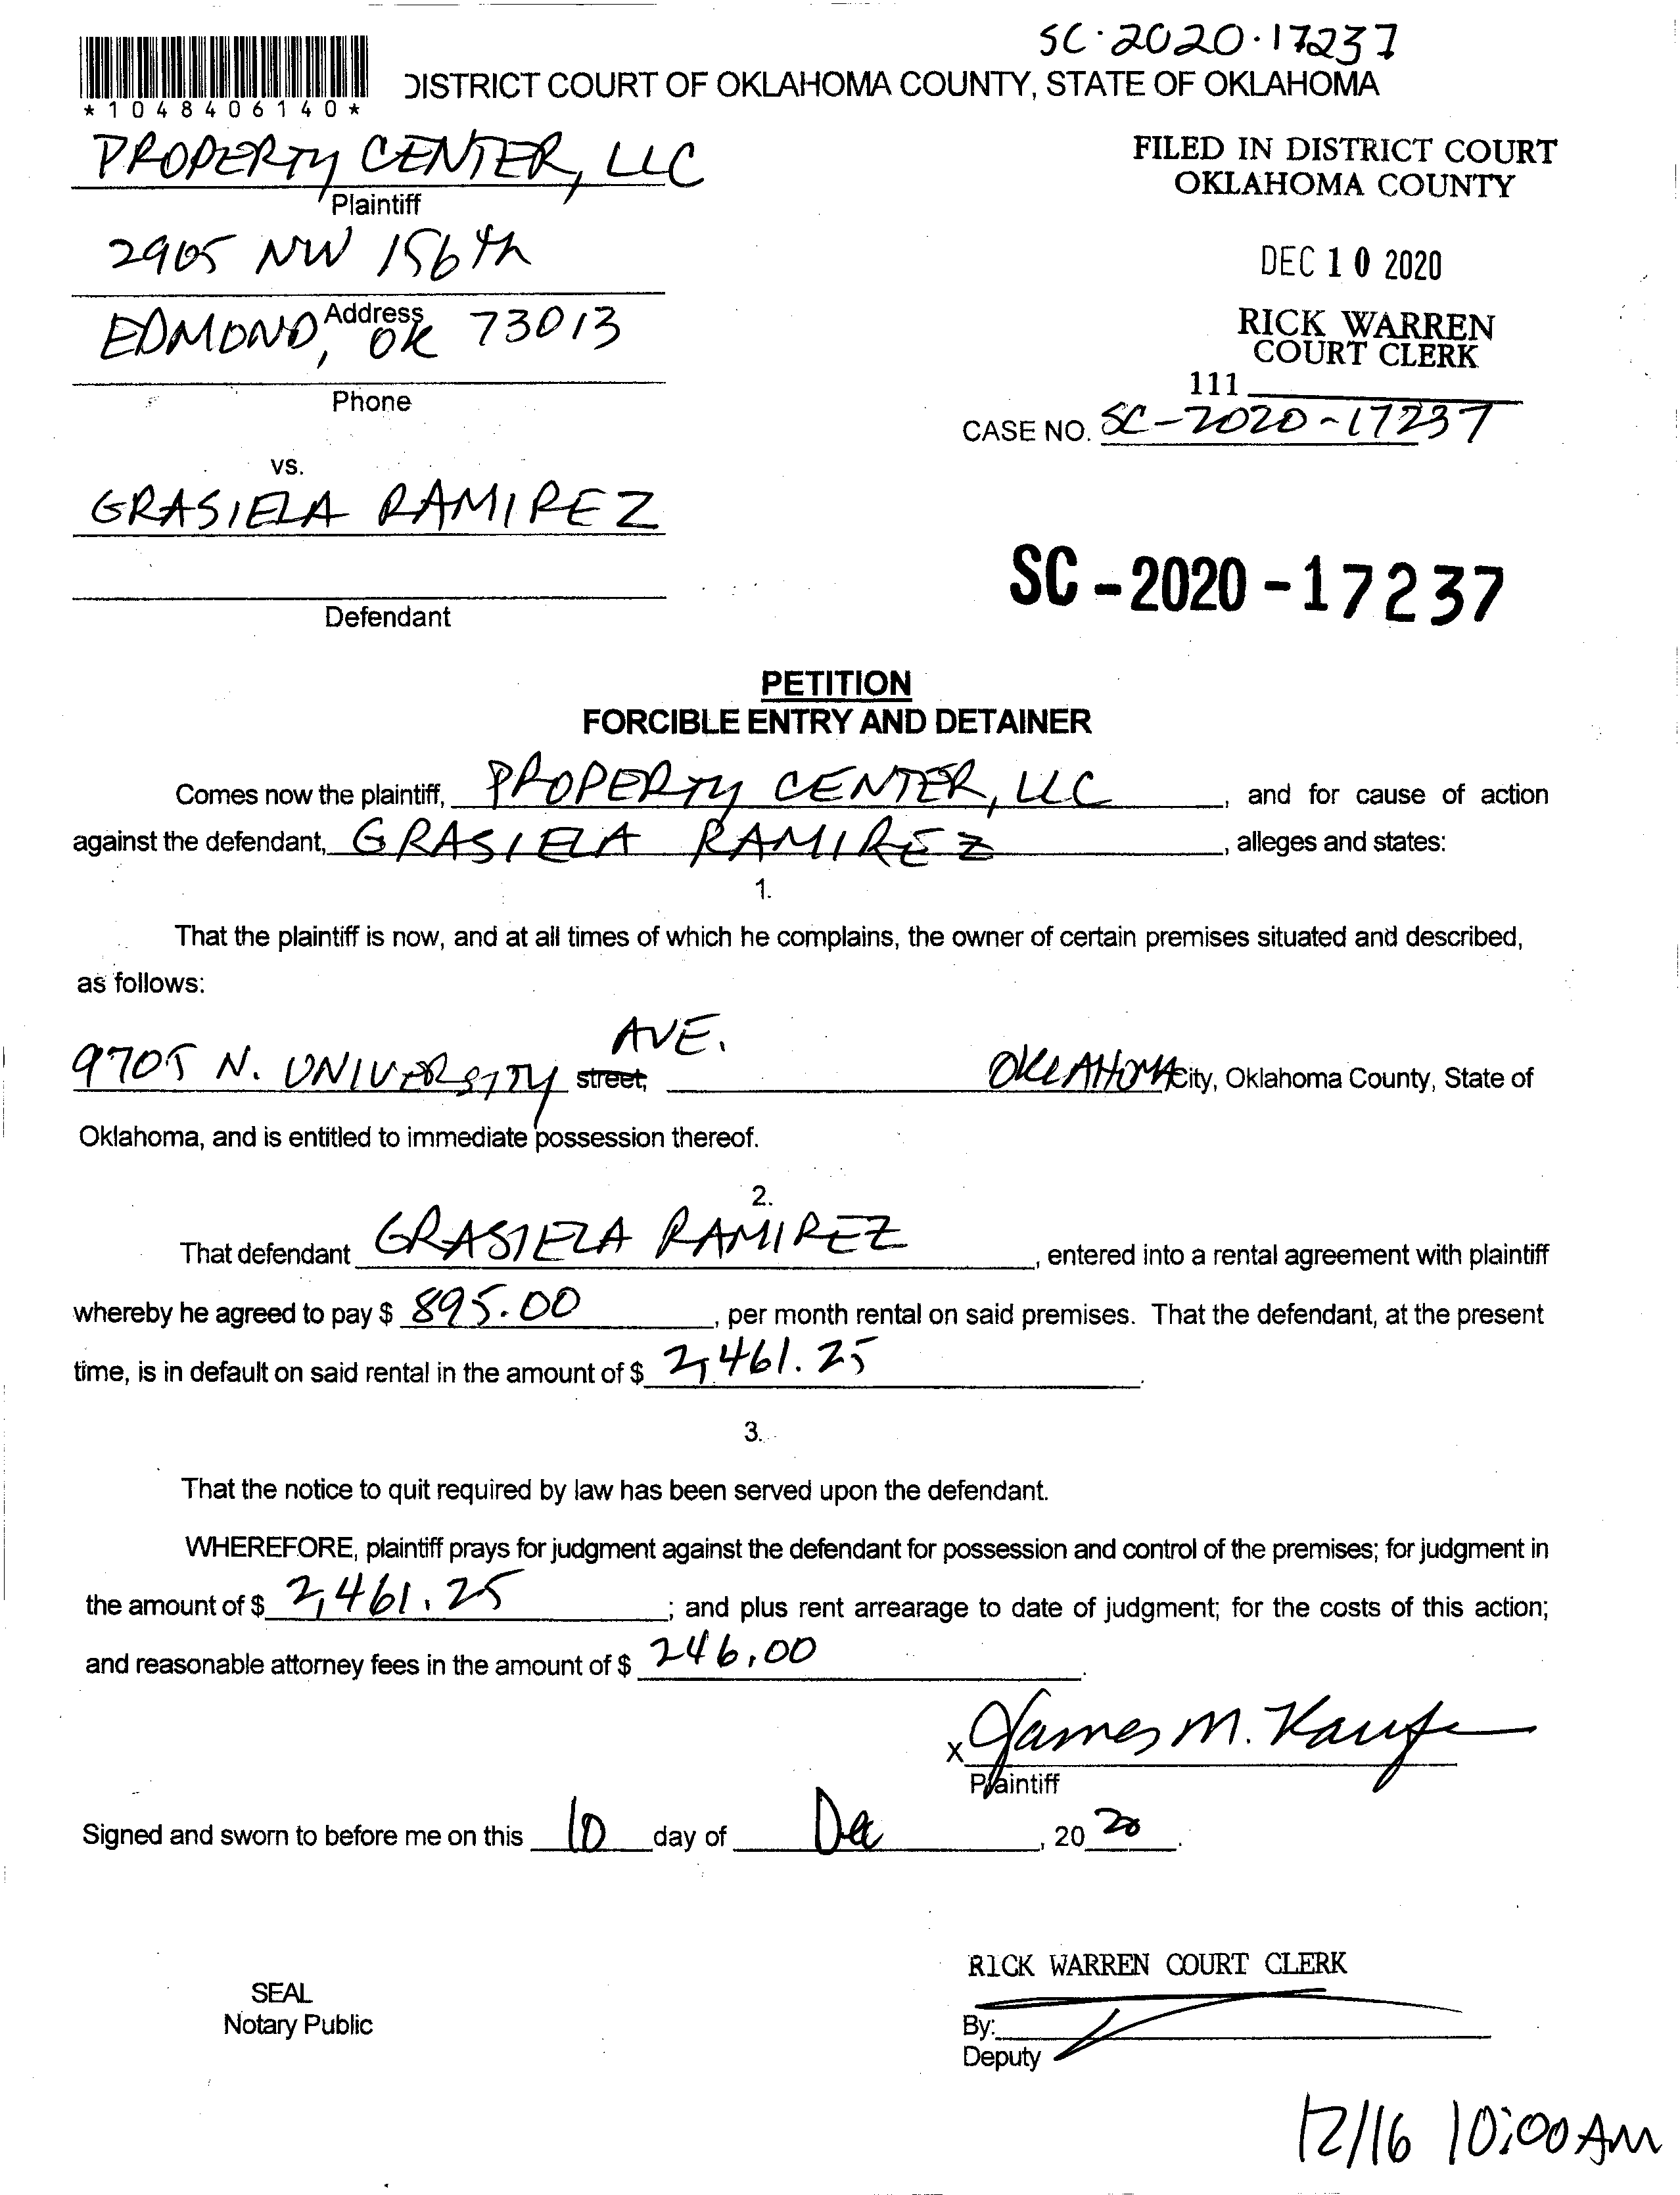 SC·2020·17237
*1048406140*
DISTRICT COURT OF OKLAHOMA COUNTY, STATE OF OKLAHOMA
PROPERTY CENTER, LLC
Plaintiff
FILED IN DISTRICT COURT
OKLAHOMA COUNTY
2905 NW 156th
Address
DEC 10 2020
EDMOND, OK 73013
Phone
RICK WARREN
COURT CLERK
111
CASE NO. SC-2020-17237
vs.
GRASIELA RAMIREZ
Defendant
SC-2020-17237
PETITION
FORCIBLE ENTRY AND DETAINER
Comes now the plaintiff, PROPERTY CENTER, LLC, and for cause of action
against the defendant, GRASIELA RAMIREZ, alleges and states:
1.
That the plaintiff is now, and at all times of which he complains, the owner of certain premises situated and described,
as follows:
AVE.
9705 N. UNIVERSITY street, OKLAHOMA City, Oklahoma County, State of
Oklahoma, and is entitled to immediate possession thereof.
2.
That defendant GRASIELA RAMIREZ, entered into a rental agreement with plaintiff
whereby he agreed to pay $ 895.00, per month rental on said premises. That the defendant, at the present
time, is in default on said rental in the amount of $ 2,461.25.
3.
That the notice to quit required by law has been served upon the defendant.
WHEREFORE, plaintiff prays for judgment against the defendant for possession and control of the premises; for judgment in
the amount of $ 2,461.25; and plus rent arrearage to date of judgment; for the costs of this action;
and reasonable attorney fees in the amount of $ 246.00.
X James M.
Plaintiff
Signed and sworn to before me on this 10 day of Dec, 2020.
RICK WARREN COURT CLERK
SEAL
Notary Public
By:
Deputy
12/16 10:00 AM